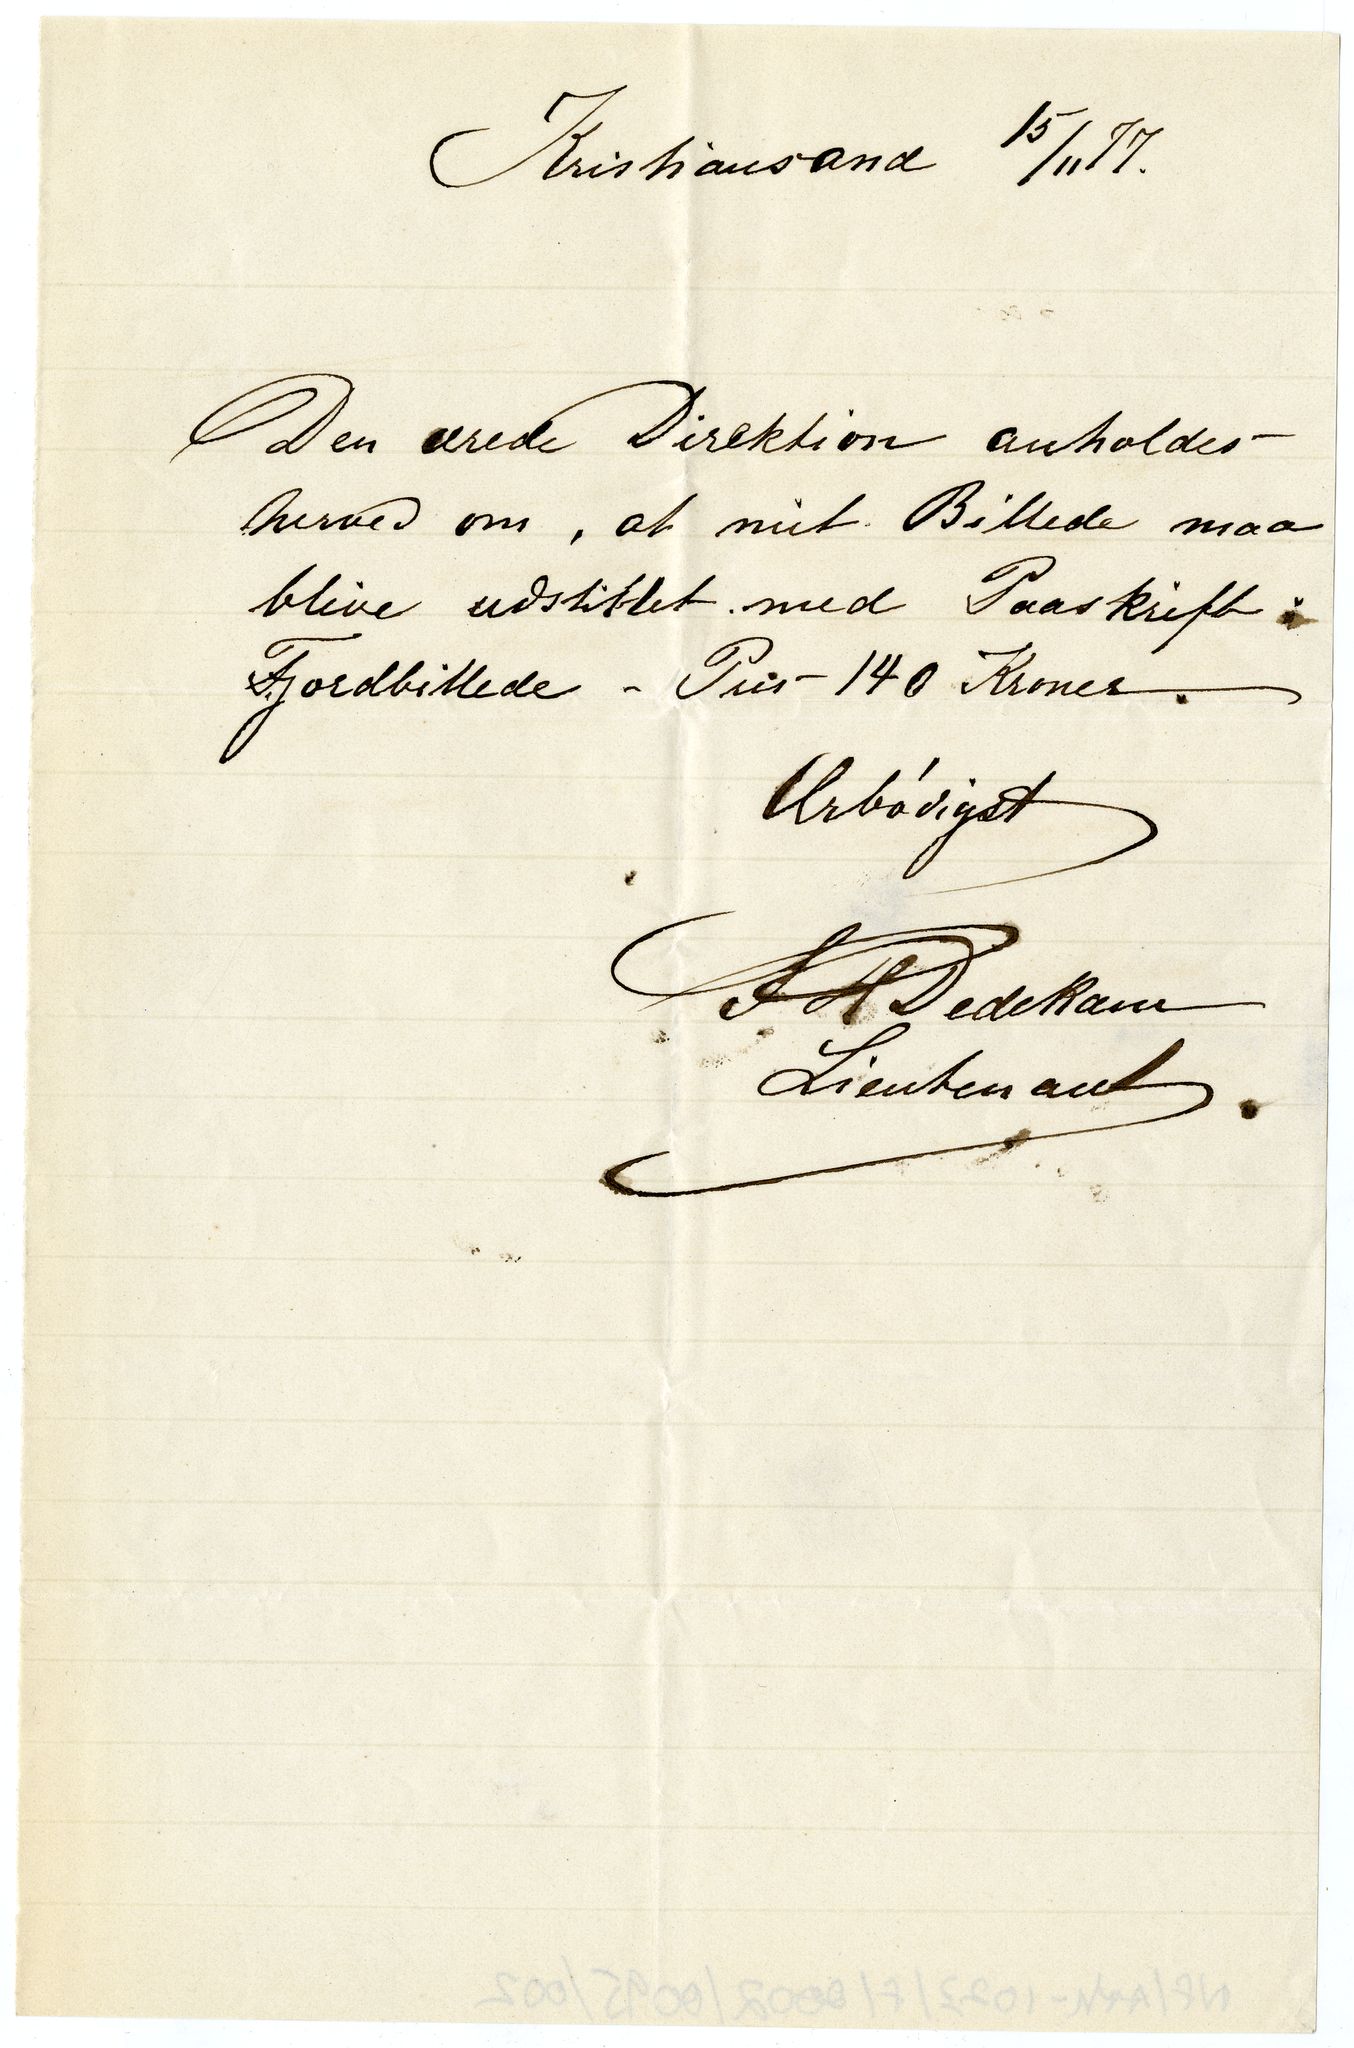 Kristiansand 15/11 77.
Den ærede Direktion anholdes
herved om, at mit Billede maa
blive udstillet med Paaskrift:
Fjordbillede - Pris 140 Kroner.
Ærbödigst
A H Dedekam
Lieutenant.